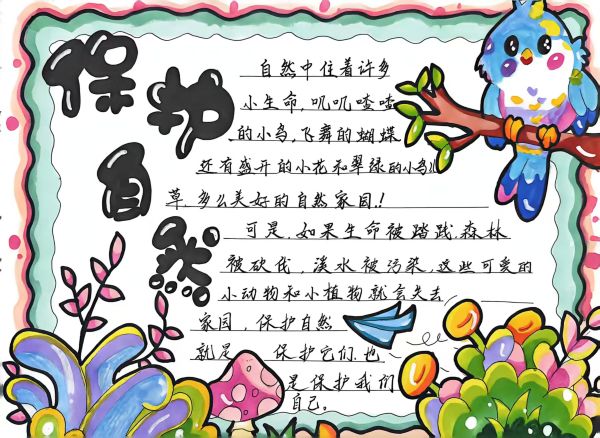 保护
自然
自然中住着许多
小生命,叽叽喳喳
的小鸟,飞舞的蝴蝶
还有盛开的小花和翠绿的小
草,多么美好的自然家园!
可是,如果生命被踏践,森林
被砍伐,溪水被污染,这些可爱的
小动物和小植物就会失去
家园,保护自然
就是 保护它们也
是保护我们
自己。